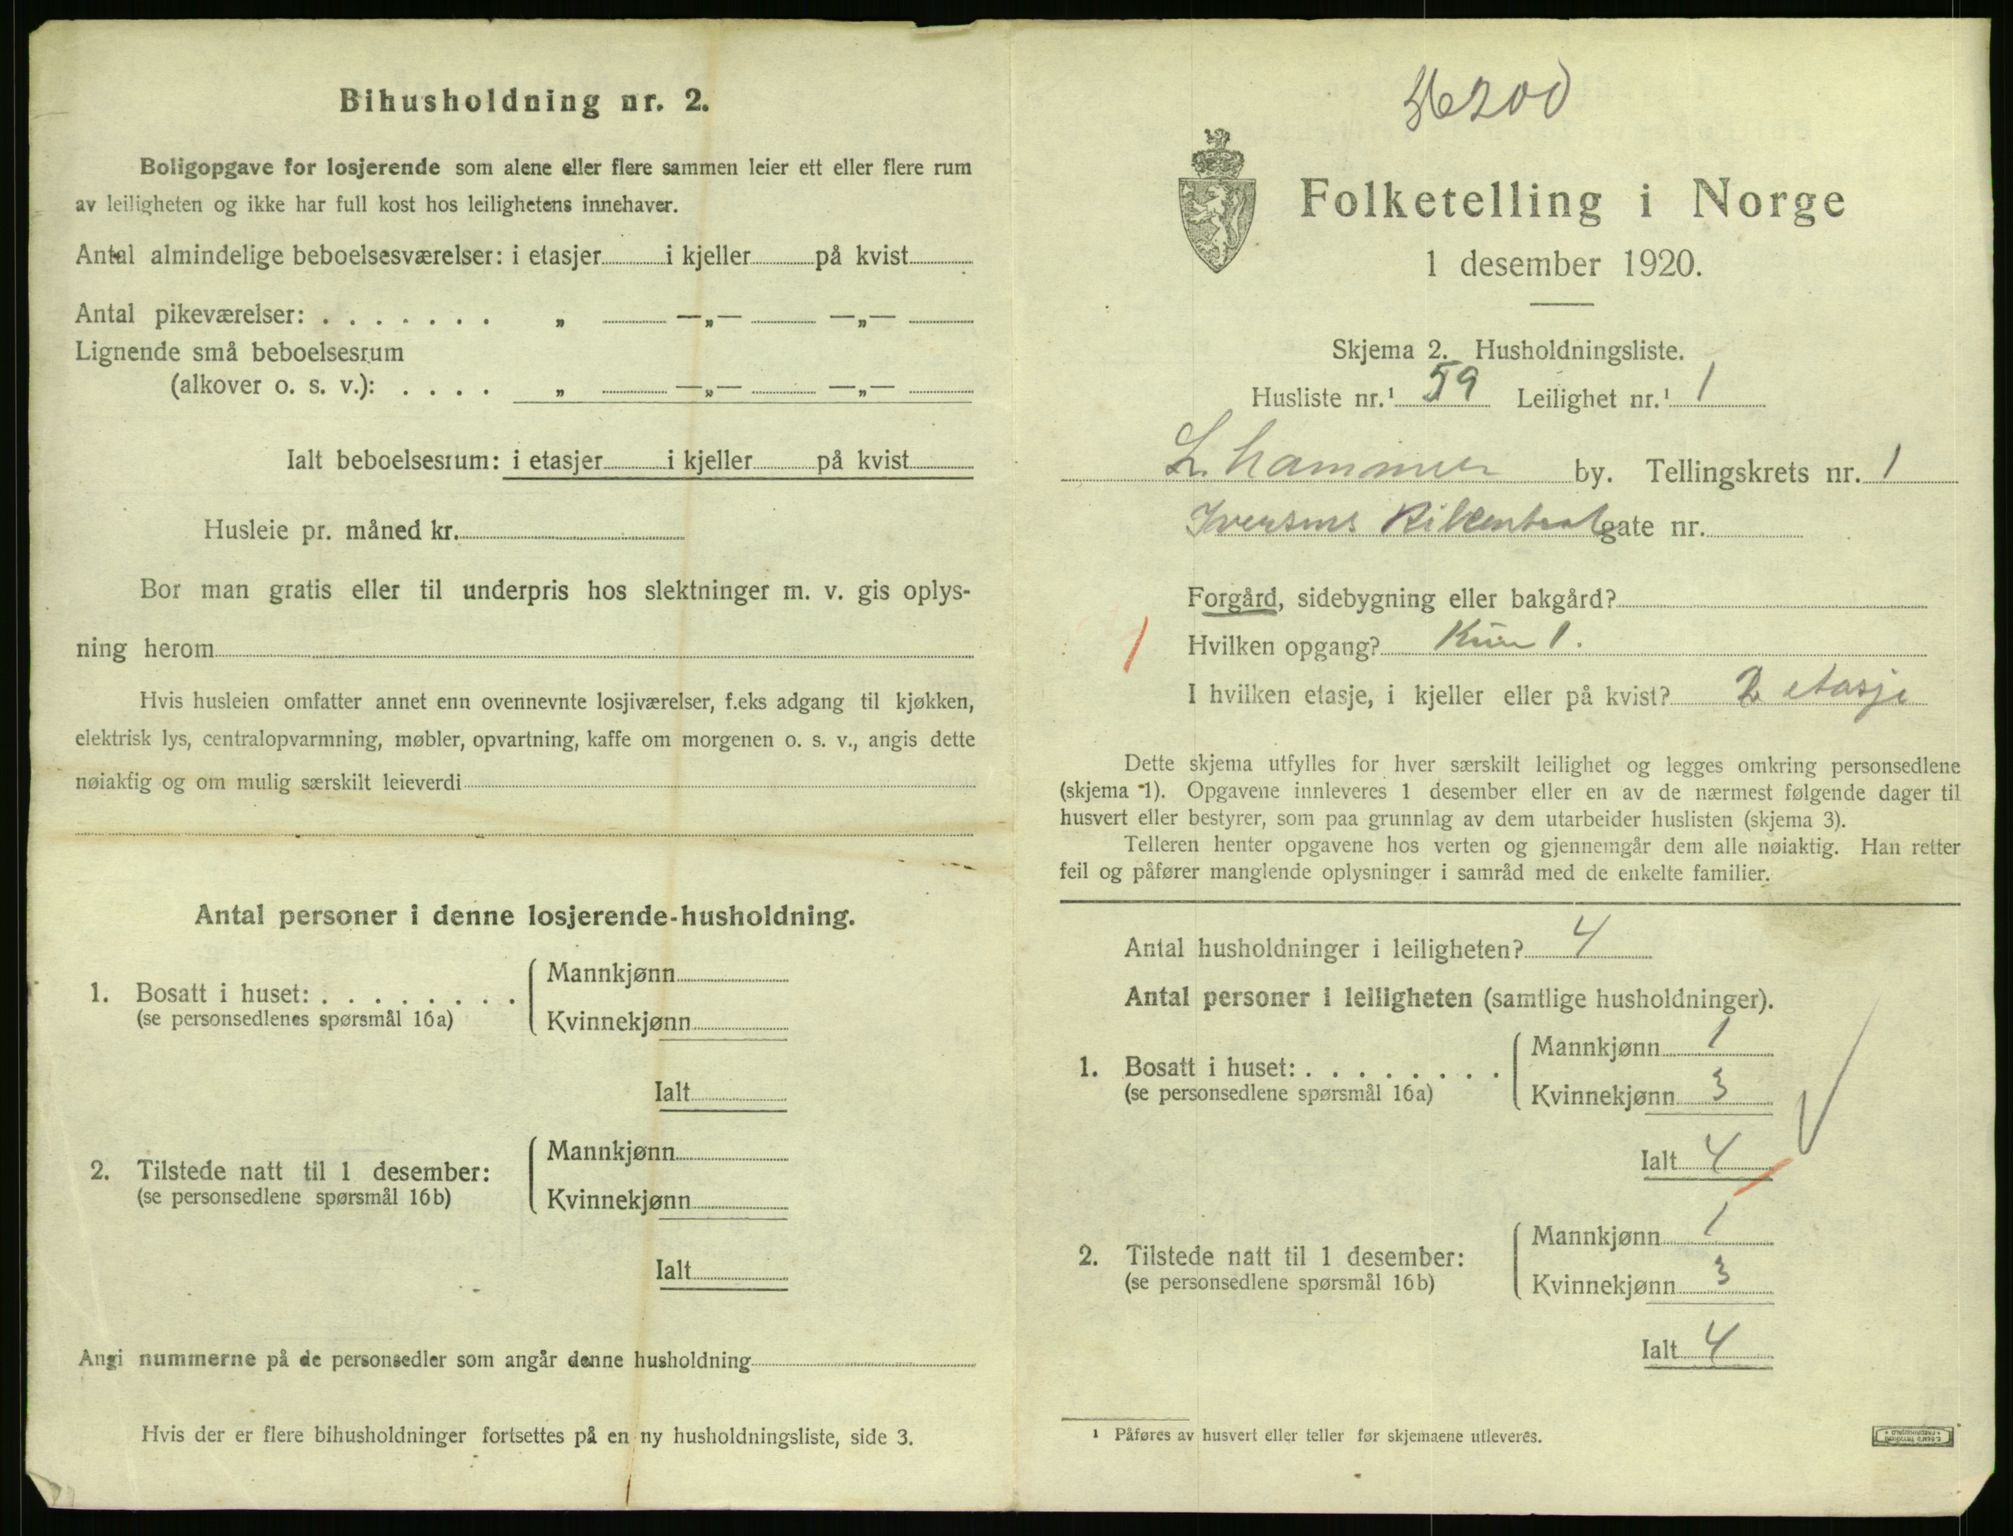 Bihusholdning nr. 2.
Boligopgave for losjerende som alene eller flere sammen leier ett eller flere rum
av leiligheten og ikke har full kost hos leilighetens innehaver.
Antal almindelige beboelsesværelser: i etasjer i kjeller på kvist
Antal pikeværelser: . . . . . . . „ —„— —„—
Lignende små beboelsesrum
(alkover o. s. v.): . . . . „ —„— —„—
Ialt beboelsesrum: i etasjer i kjeller på kvist
Husleie pr. måned kr.
Bor man gratis eller til underpris hos slektninger m. v. gis oplys-
ning herom
Hvis husleien omfatter annet enn ovennevnte losjiværelser, f.eks adgang til kjøkken,
elektrisk lys, centralopvarmning, møbler, opvartning, kaffe om morgenen o. s. v., angis dette
nøiaktig og om mulig særskilt leieverdi
Antal personer i denne losjerende-husholdning.
1. Bosatt i huset: . . . . . . . .
(se personsedlenes spørsmål 16a)
Mannkjønn
Kvinnekjønn
Ialt
2. Tilstede natt til 1 desember:
(se personsedlene spørsmål 16b)
Mannkjønn
Kvinnekjønn
Ialt
Angi nummerne på de personsedler som angår denne husholdning
Hvis der er flere bihusholdninger fortsettes på en ny husholdningsliste, side 3.
Folketelling i Norge
1 desember 1920.
Skjema 2. Husholdningsliste.
Husliste nr.¹ 59 Leilighet nr.¹ 1
L.hammer by. Tellingskrets nr. 1
Iversens gate nr.
Forgård, sidebygning eller bakgård?
1 Hvilken opgang? Kun 1.
I hvilken etasje, i kjeller eller på kvist? 2 etasje
Dette skjema utfylles for hver særskilt leilighet og legges omkring personsedlene
(skjema 1). Opgavene innleveres 1 desember eller en av de nærmest følgende dager til
husvert eller bestyrer, som paa grunnlag av dem utarbeider huslisten (skjema 3).
Telleren henter opgavene hos verten og gjennemgår dem alle nøiaktig. Han retter
feil og påfører manglende oplysninger i samråd med de enkelte familier.
Antal husholdninger i leiligheten? 4
Antal personer i leiligheten (samtlige husholdninger).
1. Bosatt i huset: . . . . . . . .
(se personsedlene spørsmål 16a)
Mannkjønn 1
Kvinnekjønn 3
Ialt 4
2. Tilstede natt til 1 desember:
(se personsedlene spørsmål 16b)
Mannkjønn 1
Kvinnekjønn 3
Ialt 4
¹ Påføres av husvert eller teller før skjemaene utleveres.